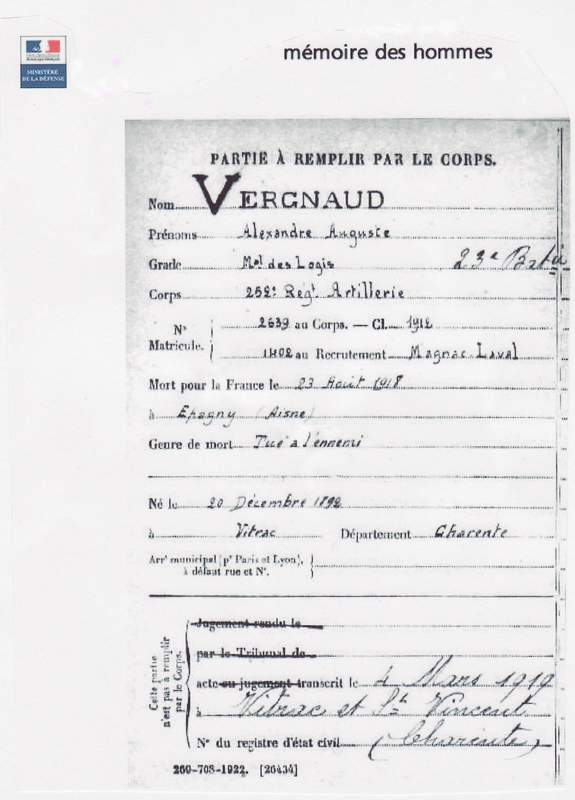 MINISTÈRE
DE LA DÉFENSE
mémoire des hommes
PARTIE À REMPLIR PAR LE CORPS.
Nom VERGNAUD
Prénoms Alexandre Auguste
Grade Mal des Logis 23e Batie
Corps 252e Régt Artillerie
N° Matricule. { 2639 au Corps. — Cl. 1912
1402 au Recrutement Magnac Laval
Mort pour la France le 23 Août 1918
à Epagny (Aisne)
Genre de mort Tué à l'ennemi
Né le 20 Décembre 1892
à Vitrac Département Charente
Arrt municipal (pr Paris et Lyon), }
à défaut rue et N°.
Cette partie n'est pas à remplir par le Corps.
Jugement rendu le
par le Tribunal de
acte ou jugement transcrit le 4 Mars 1919
à Vitrac et St Vincent
N° du registre d'état civil (Charente)
269-708-1922. [26434]